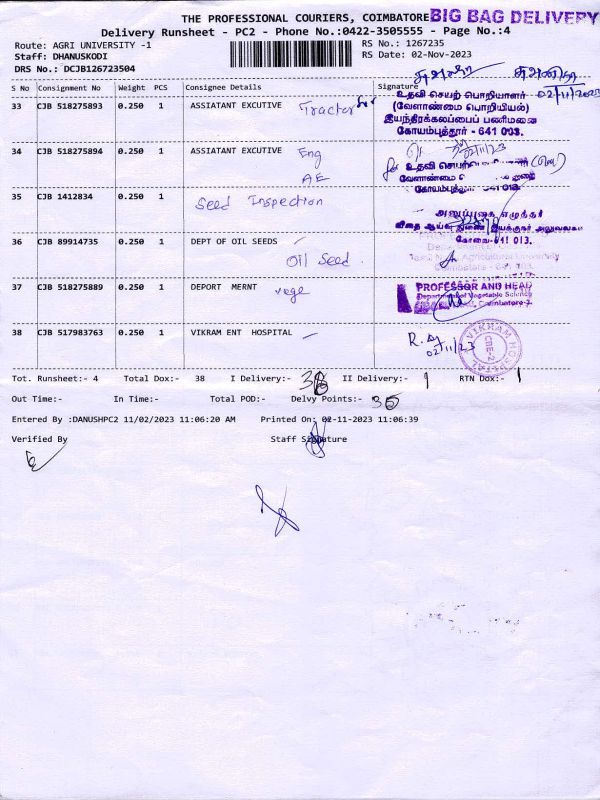 THE PROFESSIONAL COURIERS, COIMBATORE BIG BAG DELIVERY
Delivery Runsheet - PC2 - Phone No.:0422-3505555 - Page No.:4
Route: AGRI UNIVERSITY -1 RS No.: 1267235
Staff: DHANUSKODI RS Date: 02-Nov-2023
DRS No.: DCJB126723504
S No Consignment No Weight PCS Consignee Details Signature
02/11/2023
33 CJB 518275893 0.250 1 ASSIATANT EXCUTIVE Tractor
உதவி செயற் பொறியாளர்
(வேளாண்மை பொறியியல்)
இயந்திரக்கலப்பைப் பணிமனை
கோயம்புத்தூர் - 641 003.
34 CJB 518275894 0.250 1 ASSIATANT EXCUTIVE Eng
AE
உதவி
வேளாண்மை
35 CJB 1412834 0.250 1 Seed Inspection
கோவை-641 013.
36 CJB 89914735 0.250 1 DEPT OF OIL SEEDS
Oil Seed
37 CJB 518275889 0.250 1 DEPORT MERNT vege
PROFESSOR AND HEAD
Department of Vegetable Science
Coimbatore-3
38 CJB 517983763 0.250 1 VIKRAM ENT HOSPITAL
02/11/23
VIKRAM HOSPITAL
CBE-2
Tot. Runsheet:- 4 Total Dox:- 38 I Delivery:- II Delivery:- 1 RTN Dox:- 1
Out Time:- In Time:- Total POD:- Delvy Points:- 35
Entered By :DANUSHPC2 11/02/2023 11:06:20 AM Printed On: 02-11-2023 11:06:39
Verified By Staff Signature